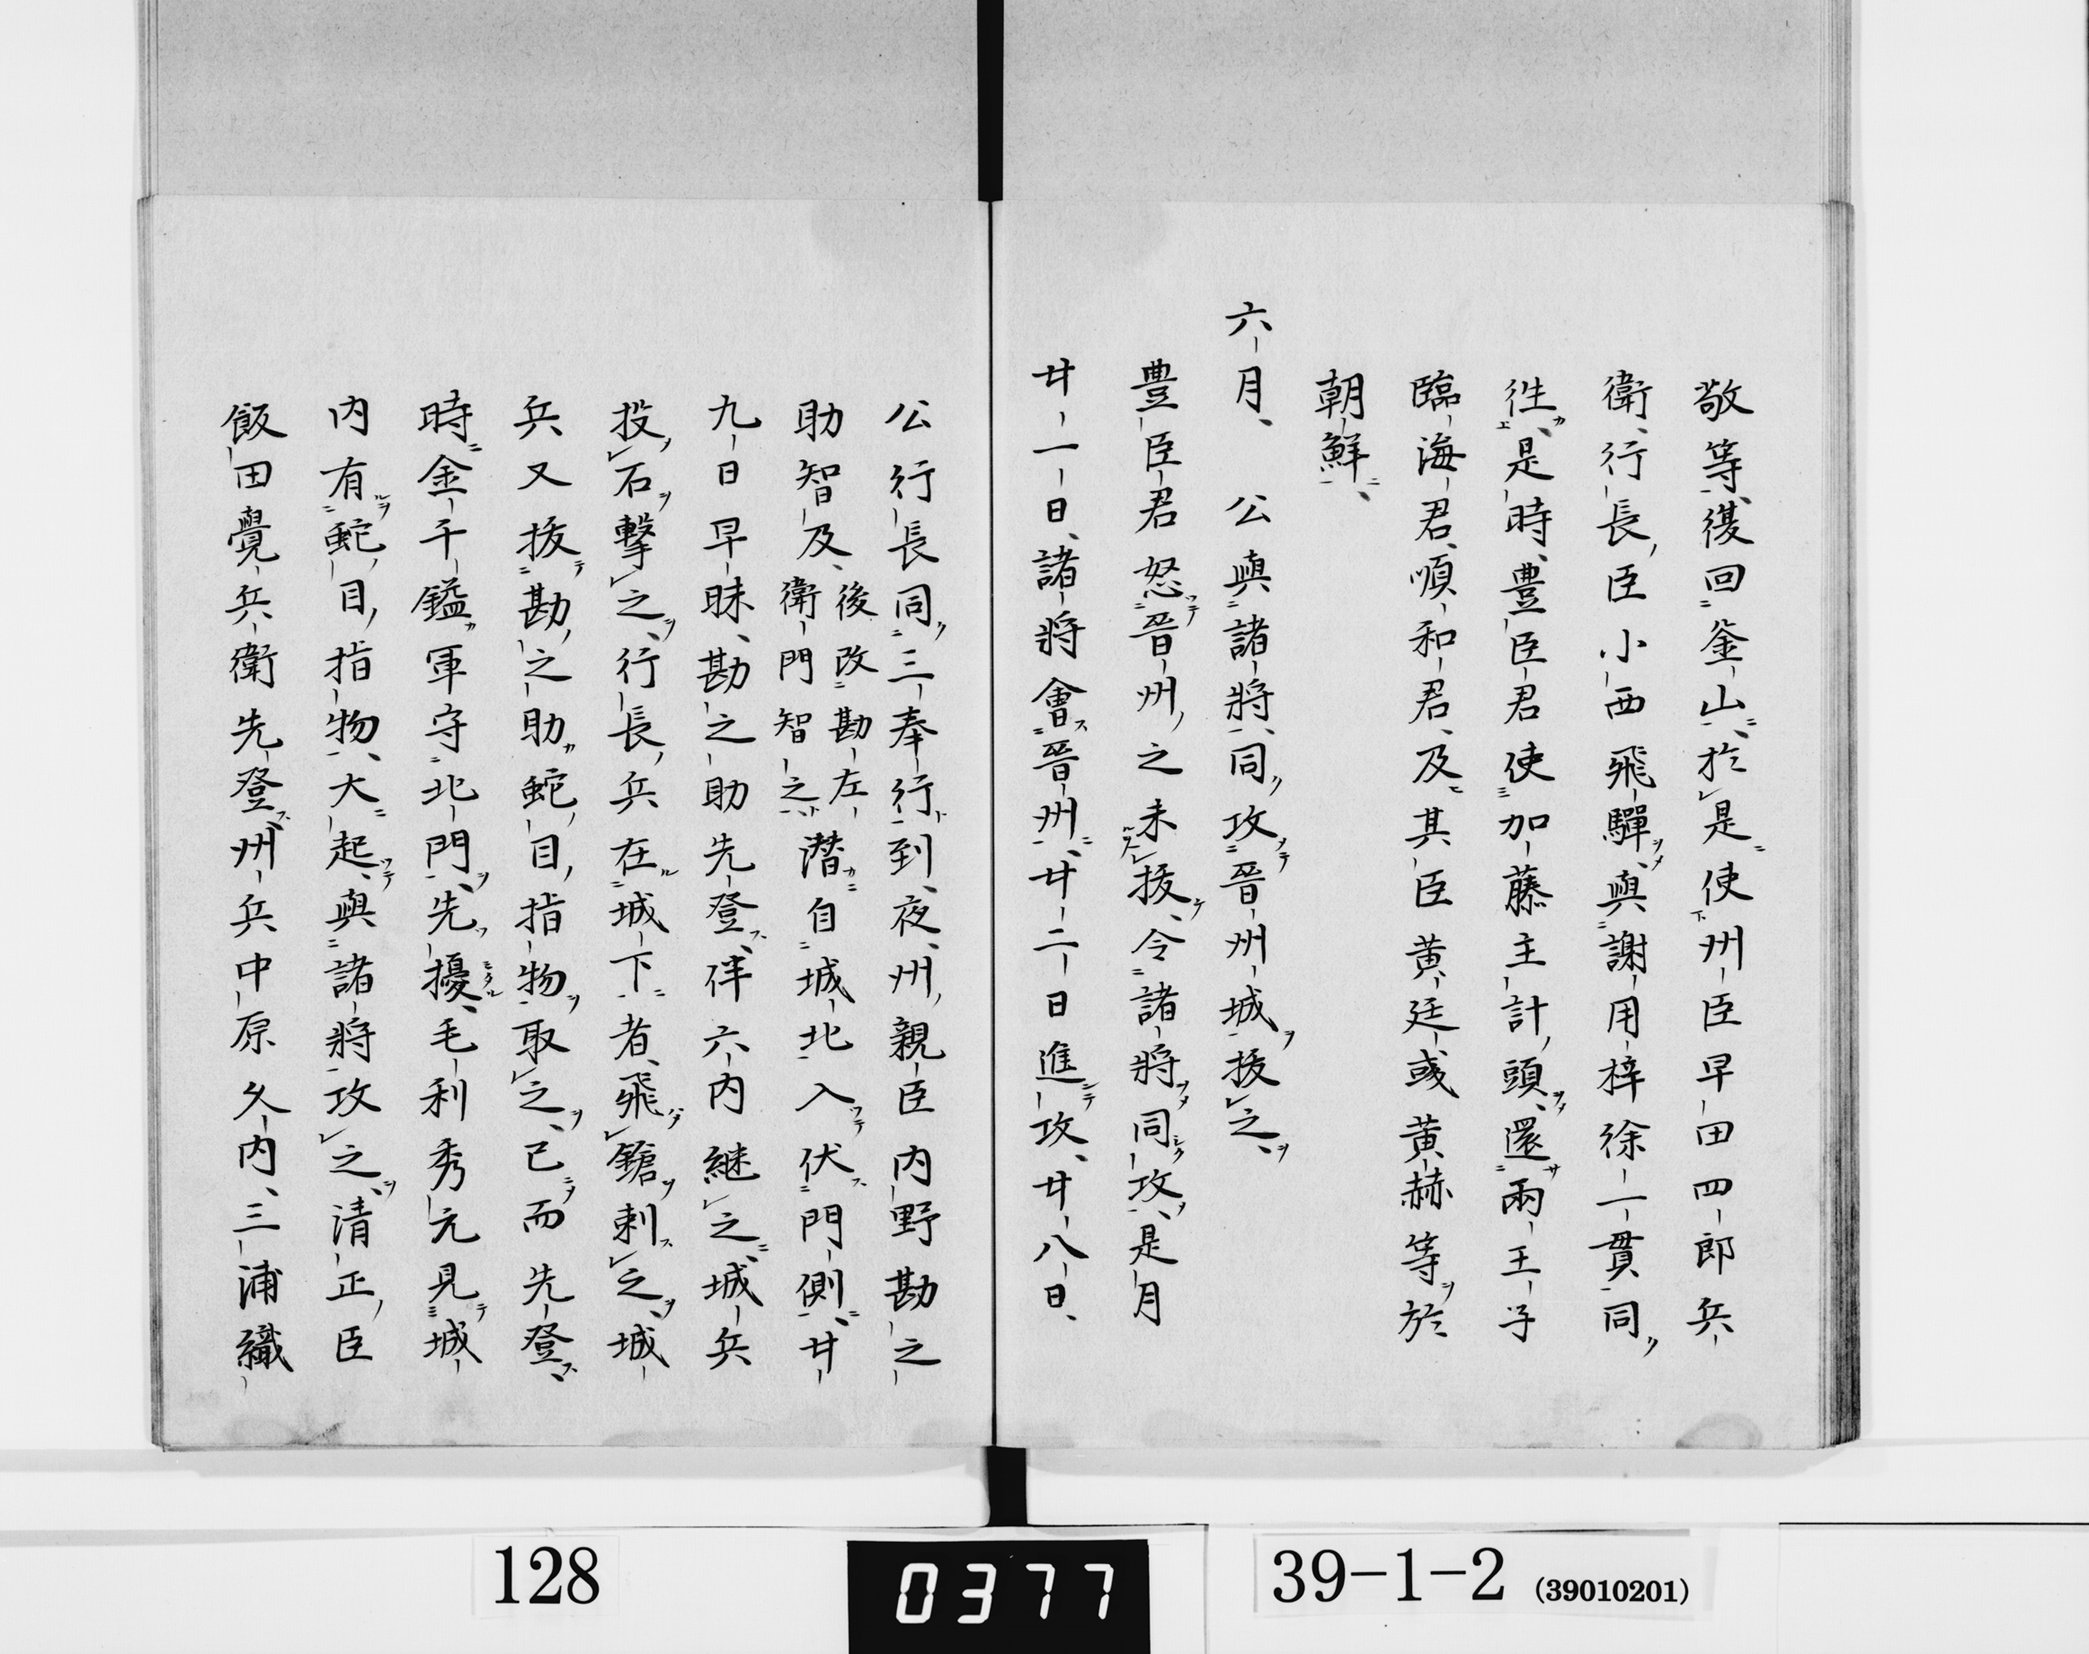 敬等復回釜山於是使州臣早田四郎兵
衛行長臣小西飛驒與謝用梓徐一貫同
徃是時豊臣君使加藤主計頭還兩王子
臨海君順和君及其臣黄廷彧黄赫等於
朝鮮
六月公與諸將同攻晉州城拔之
豊臣君怒晉州之未拔令諸將同攻是月
廿一日諸將會晉州廿二日進攻廿八日
公行長同三奉行到夜州親臣内野勘之
助智及後改勘左衛門智之潜自城北入伏門側廿
九日早昧勘之助先登伴六内継之城兵
投石擊之行長兵在城下者飛鎗刺之城
兵又拔勘之助蛇目指物取之已而先登
時金千鎰軍守北門先擾毛利秀元見城
内有蛇目指物大起與諸將攻之清正臣
飯田覺兵衛先登州兵中原久内三浦織
128
0377
39-1-2 (39010201)